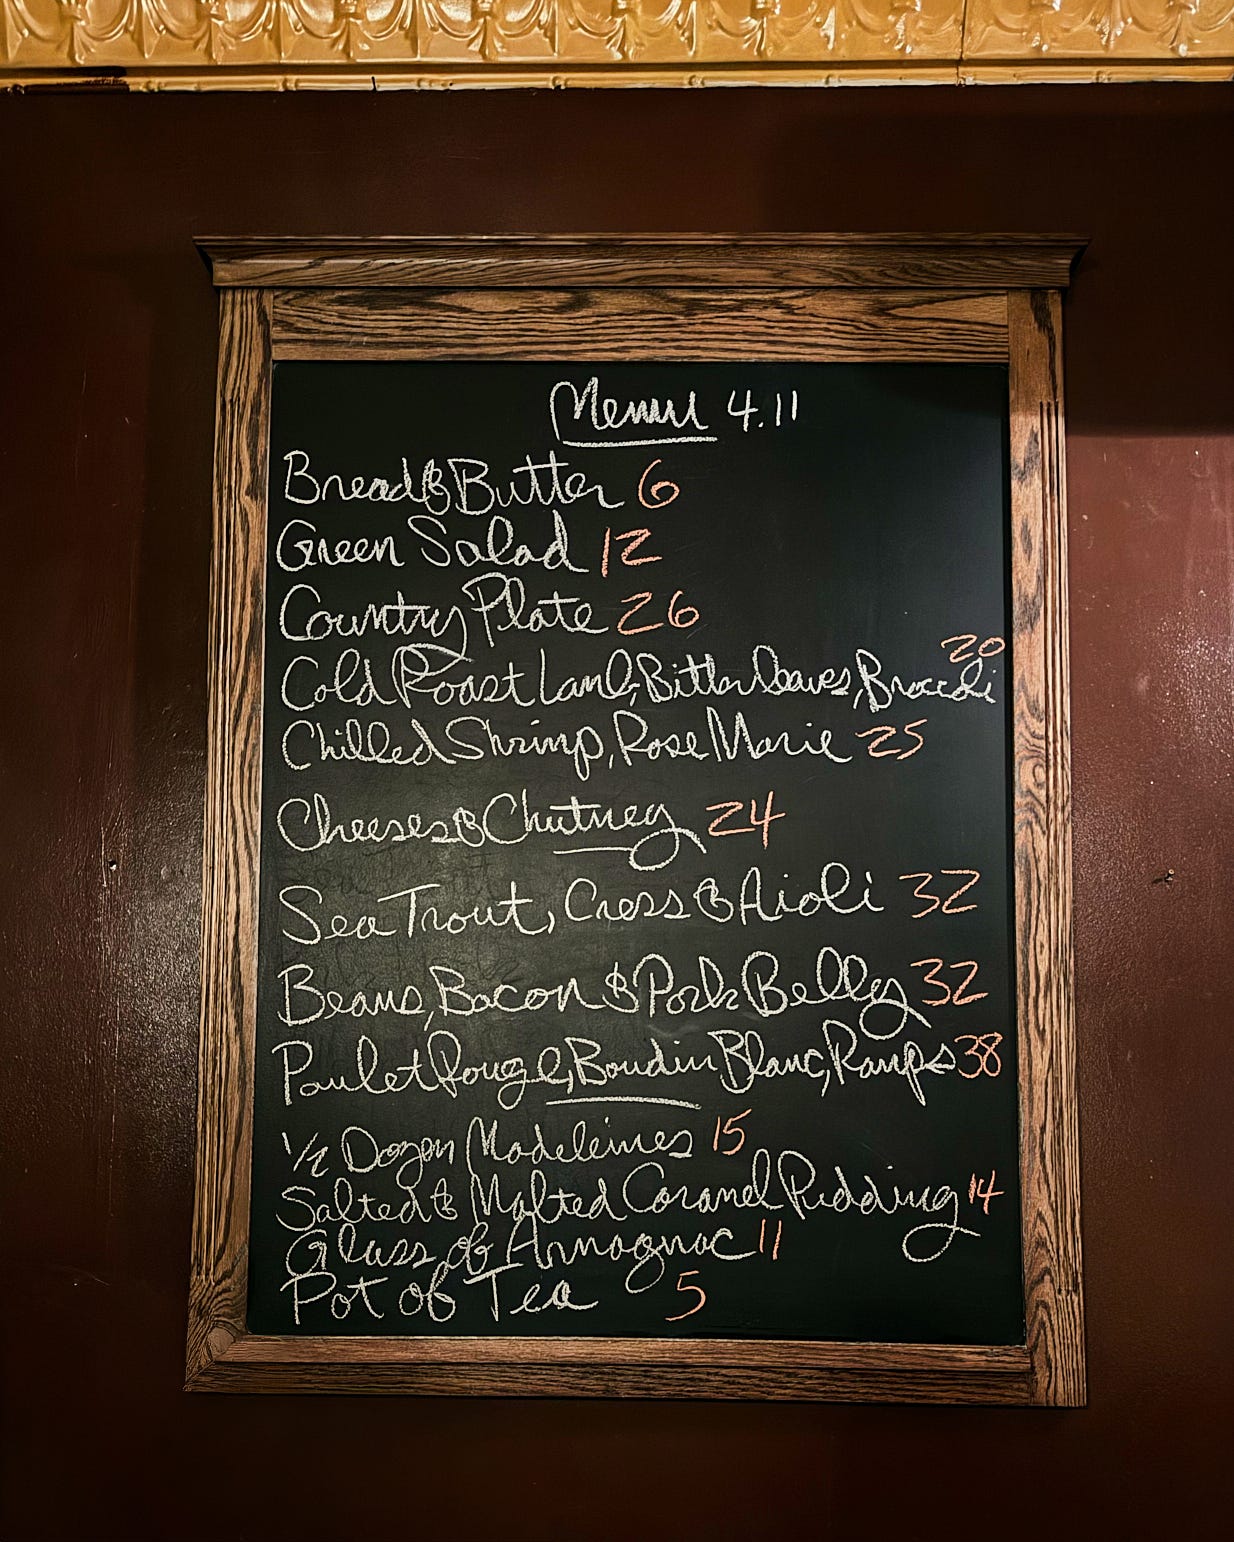 Menu 4.11
Bread & Butter 6
Green Salad 12
Country Plate 26
Cold Roast Lamb, Bitter leaves, Broccoli 20
Chilled Shrimp, Rose Marie 25
Cheeses & Chutney 24
Sea Trout, Cress & Aioli 32
Beans, Bacon & Pork Belly 32
Poulet Rouge, Boudin Blanc, Ramps 38
1/2 Dozen Madeleines 15
Salted & Malted Caramel Pudding 14
Glass of Armagnac 11
Pot of Tea 5